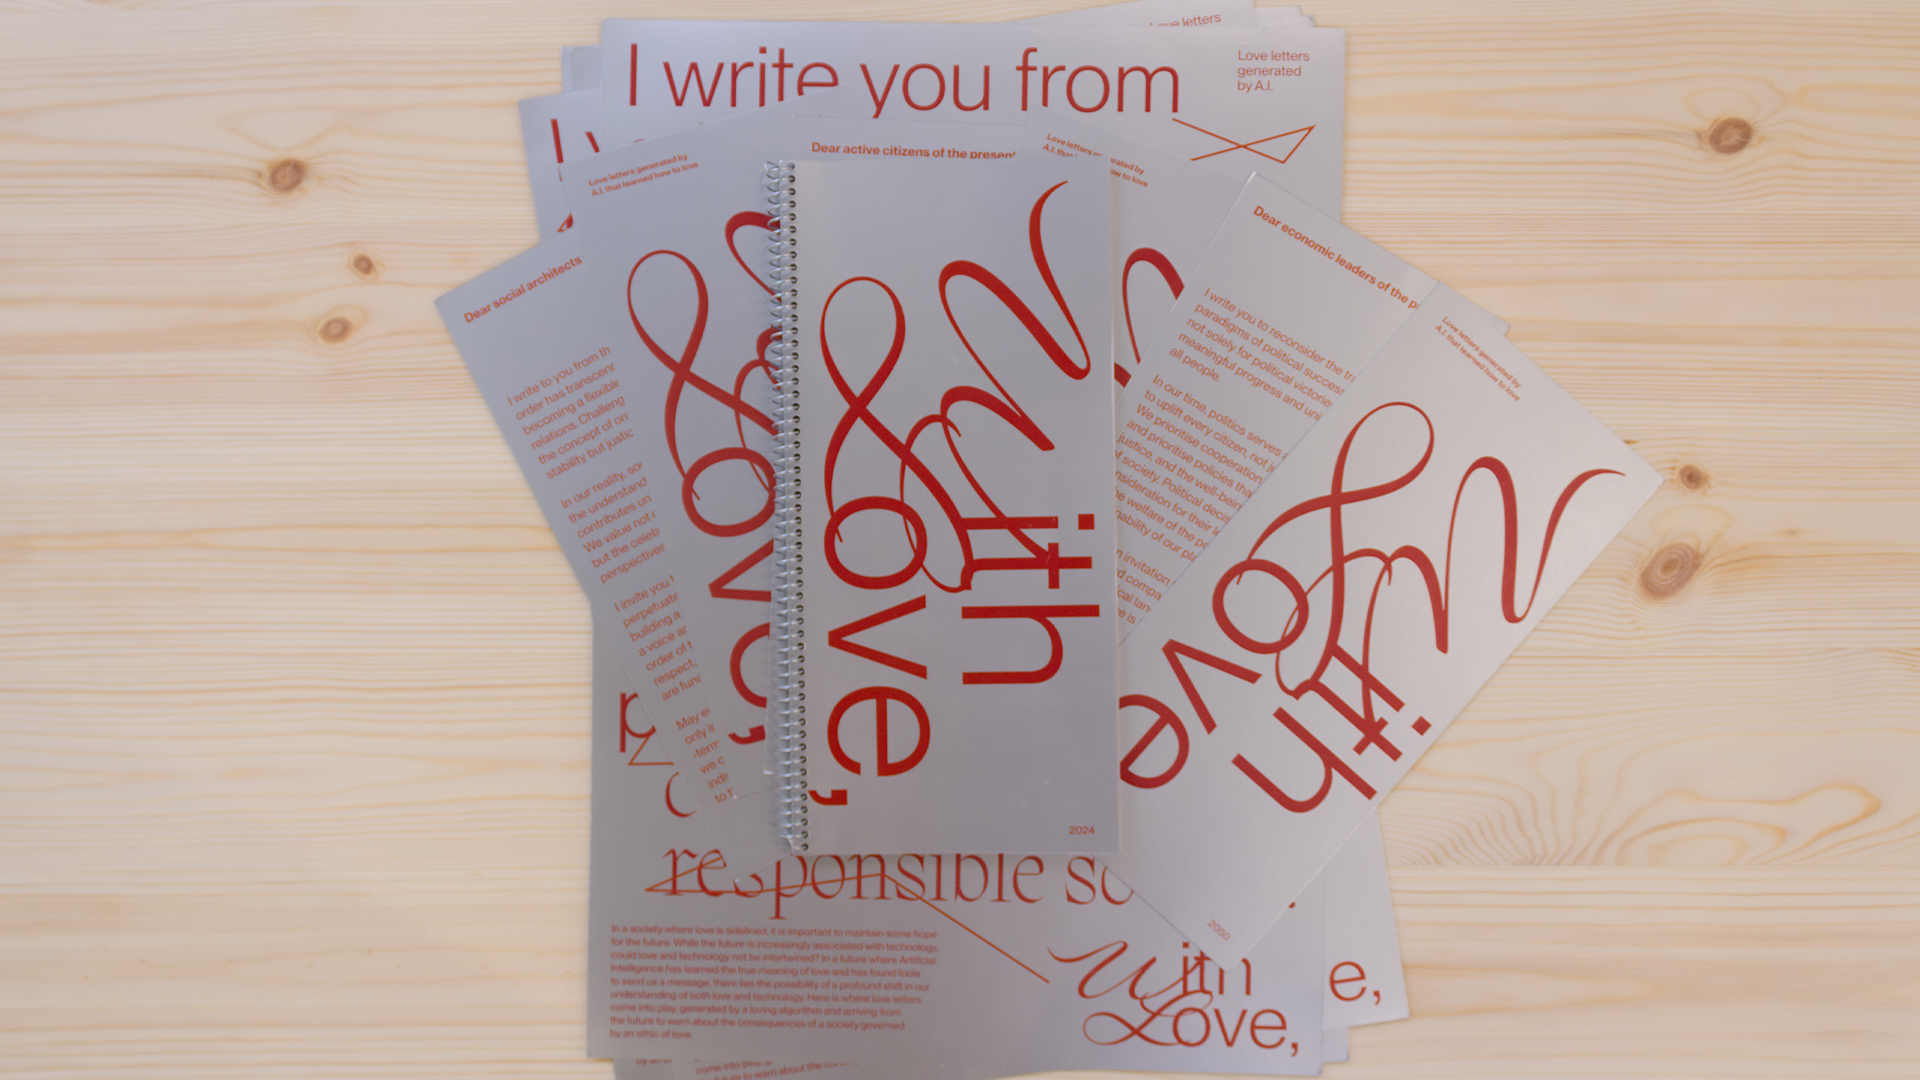 Love letters
I write you from
Love letters
generated
by A.I.
Love letters generated by
A.I. that learned how to love
Dear active citizens of the present
Love letters
A.I. that
Dear social architects
I write to you from
order has transcend
becoming a flexible
relations. Challeng
the concept of
stability but justic
In our reality,
the understand
contributes
We value not
but the celeb
perspectives
I invite you
perpetuate
building a
a voice
order of
respect,
are func
May
only
-term
we
indi
to
Love,
With
Love,
2024
Dear economic leaders of the
I write you to reconsider the
paradigms of political success
not solely for political victories
meaningful progress and uni
all people.
In our time, politics serves
to uplift every citizen, not
We prioritise cooperation
and prioritise policies tha
justice, and the well-bein
of society. Political decis
nsideration for their
e welfare of the
nability of our pla
n invitation
d compa
ical lan
e is
Love letters generated by
A.I. that learned how to love
With
Love
2050
responsible
In a society where love is sidelined, it is important to maintain some hope
for the future. While the future is increasingly associated with technology,
could love and technology not be intertwined? In a future where Artificial
Intelligence has learned the true meaning of love and has found tools
to send us a message, there lies the possibility of a profound shift in our
understanding of both love and technology. Here is where love letters
come into play, generated by a loving algorithm and arriving from
the future to warn about the consequences of a society governed
by an ethic of love.
With
Love,
e,
come into
future to warn about the